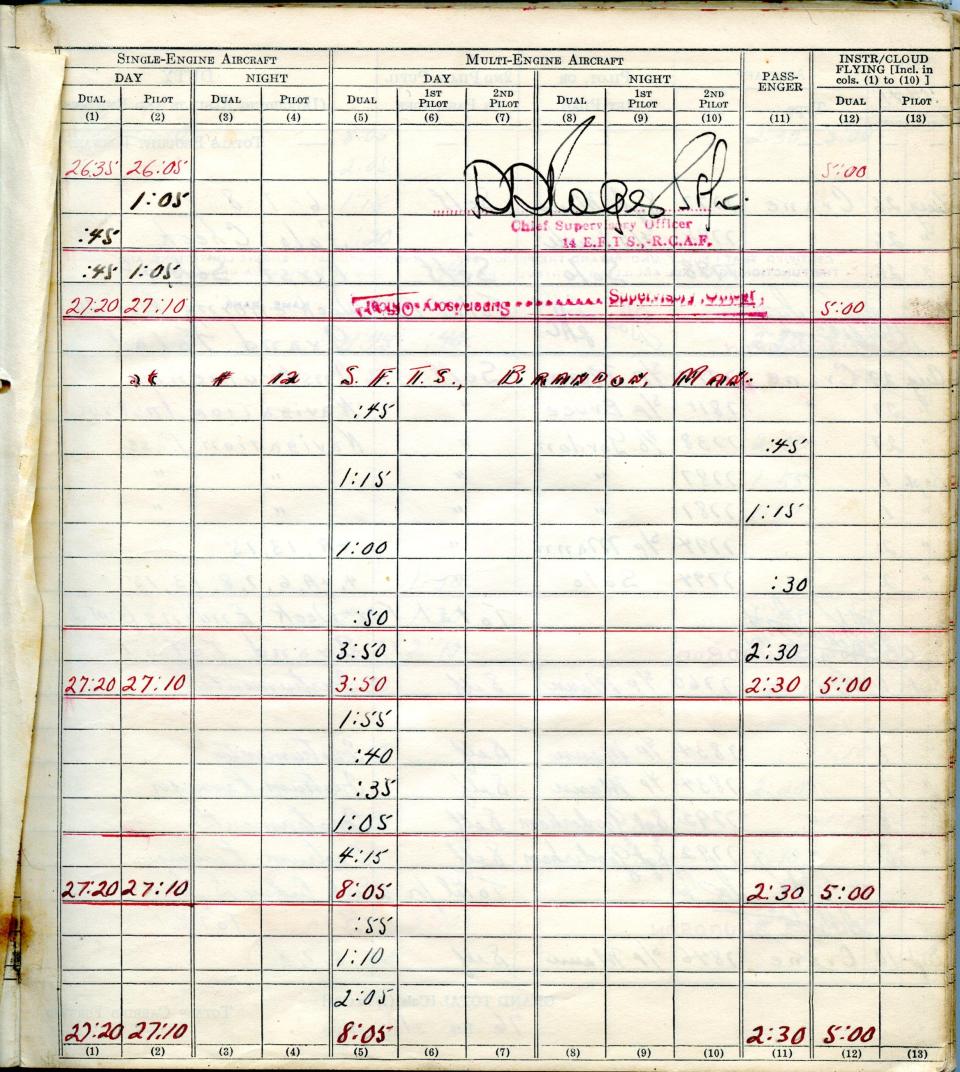 SINGLE-ENGINE AIRCRAFT MULTI-ENGINE AIRCRAFT PASS-ENGER INSTR/CLOUD FLYING [Incl. in cols. (1) to (10) ]
DAY NIGHT DAY NIGHT
DUAL PILOT DUAL PILOT DUAL 1ST PILOT 2ND PILOT DUAL 1ST PILOT 2ND PILOT DUAL PILOT
(1) (2) (3) (4) (5) (6) (7) (8) (9) (10) (11) (12) (13)
26:35 26:05 5:00
1:05
Chief Supervisory Officer
:45 14 E.F.T.S.,-R.C.A.F.
:45 1:05
27:20 27:10 Supervisory Officer Supervisory Officer 5:00
at # 12 S. F. T. S., BRANDON, MAN.
:45
:45
1:15
1:15
1:00
:30
:50
3:50 2:30
27:20 27:10 3:50 2:30 5:00
1:55
:40
:35
1:05
4:15
27:20 27:10 8:05 2:30 5:00
:55
1:10
2:05
27:20 27:10 8:05 2:30 5:00
(1) (2) (3) (4) (5) (6) (7) (8) (9) (10) (11) (12) (13)